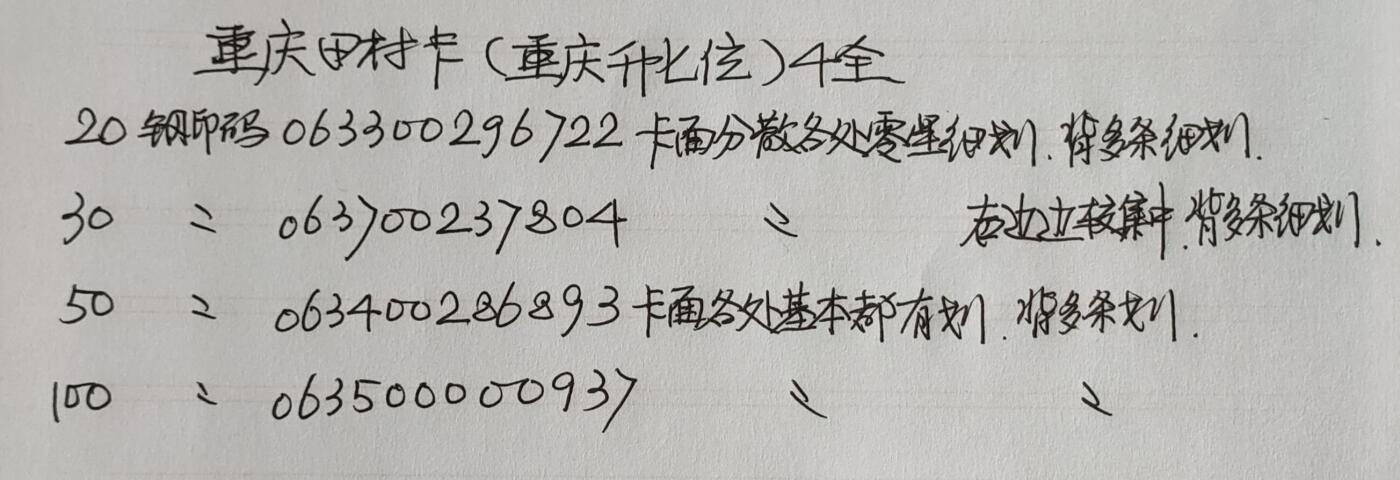 重庆田村卡（重庆升七位）4全
20 钢印码 063300296722 卡面分散各处零星细划.背多条细划.
30 〃 063700237804 〃 右边边较集中.背多条细划.
50 〃 063400286893 卡面各处基本都有划.背多条划.
100 〃 063500000937 〃 〃